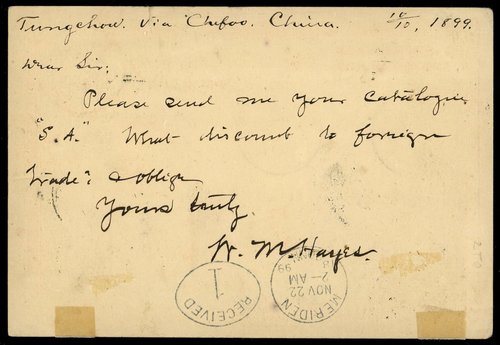 Tungchow. Via Chefoo. China. 10/10, 1899.
Dear Sir;
Please send me your catalogue
"S.A." What discount to foreign
trade? & oblige
Yours truly,
W. M. Hayes.
RECEIVED
1
MERIDEN
NOV 22
2-AM
99